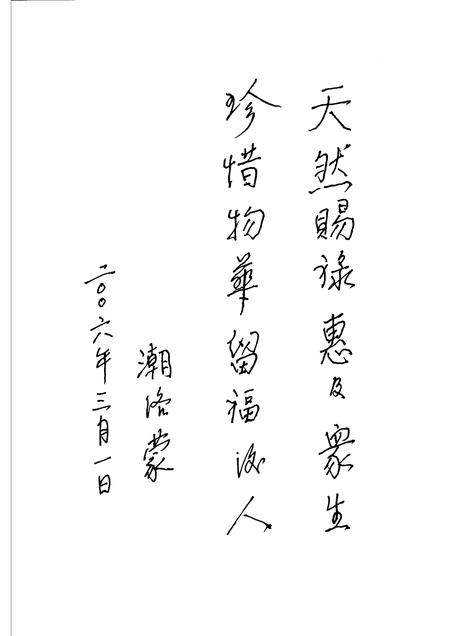 天然賜祿惠及衆生
珍惜物華留福後人
潮洛蒙
二〇〇六年三月一日